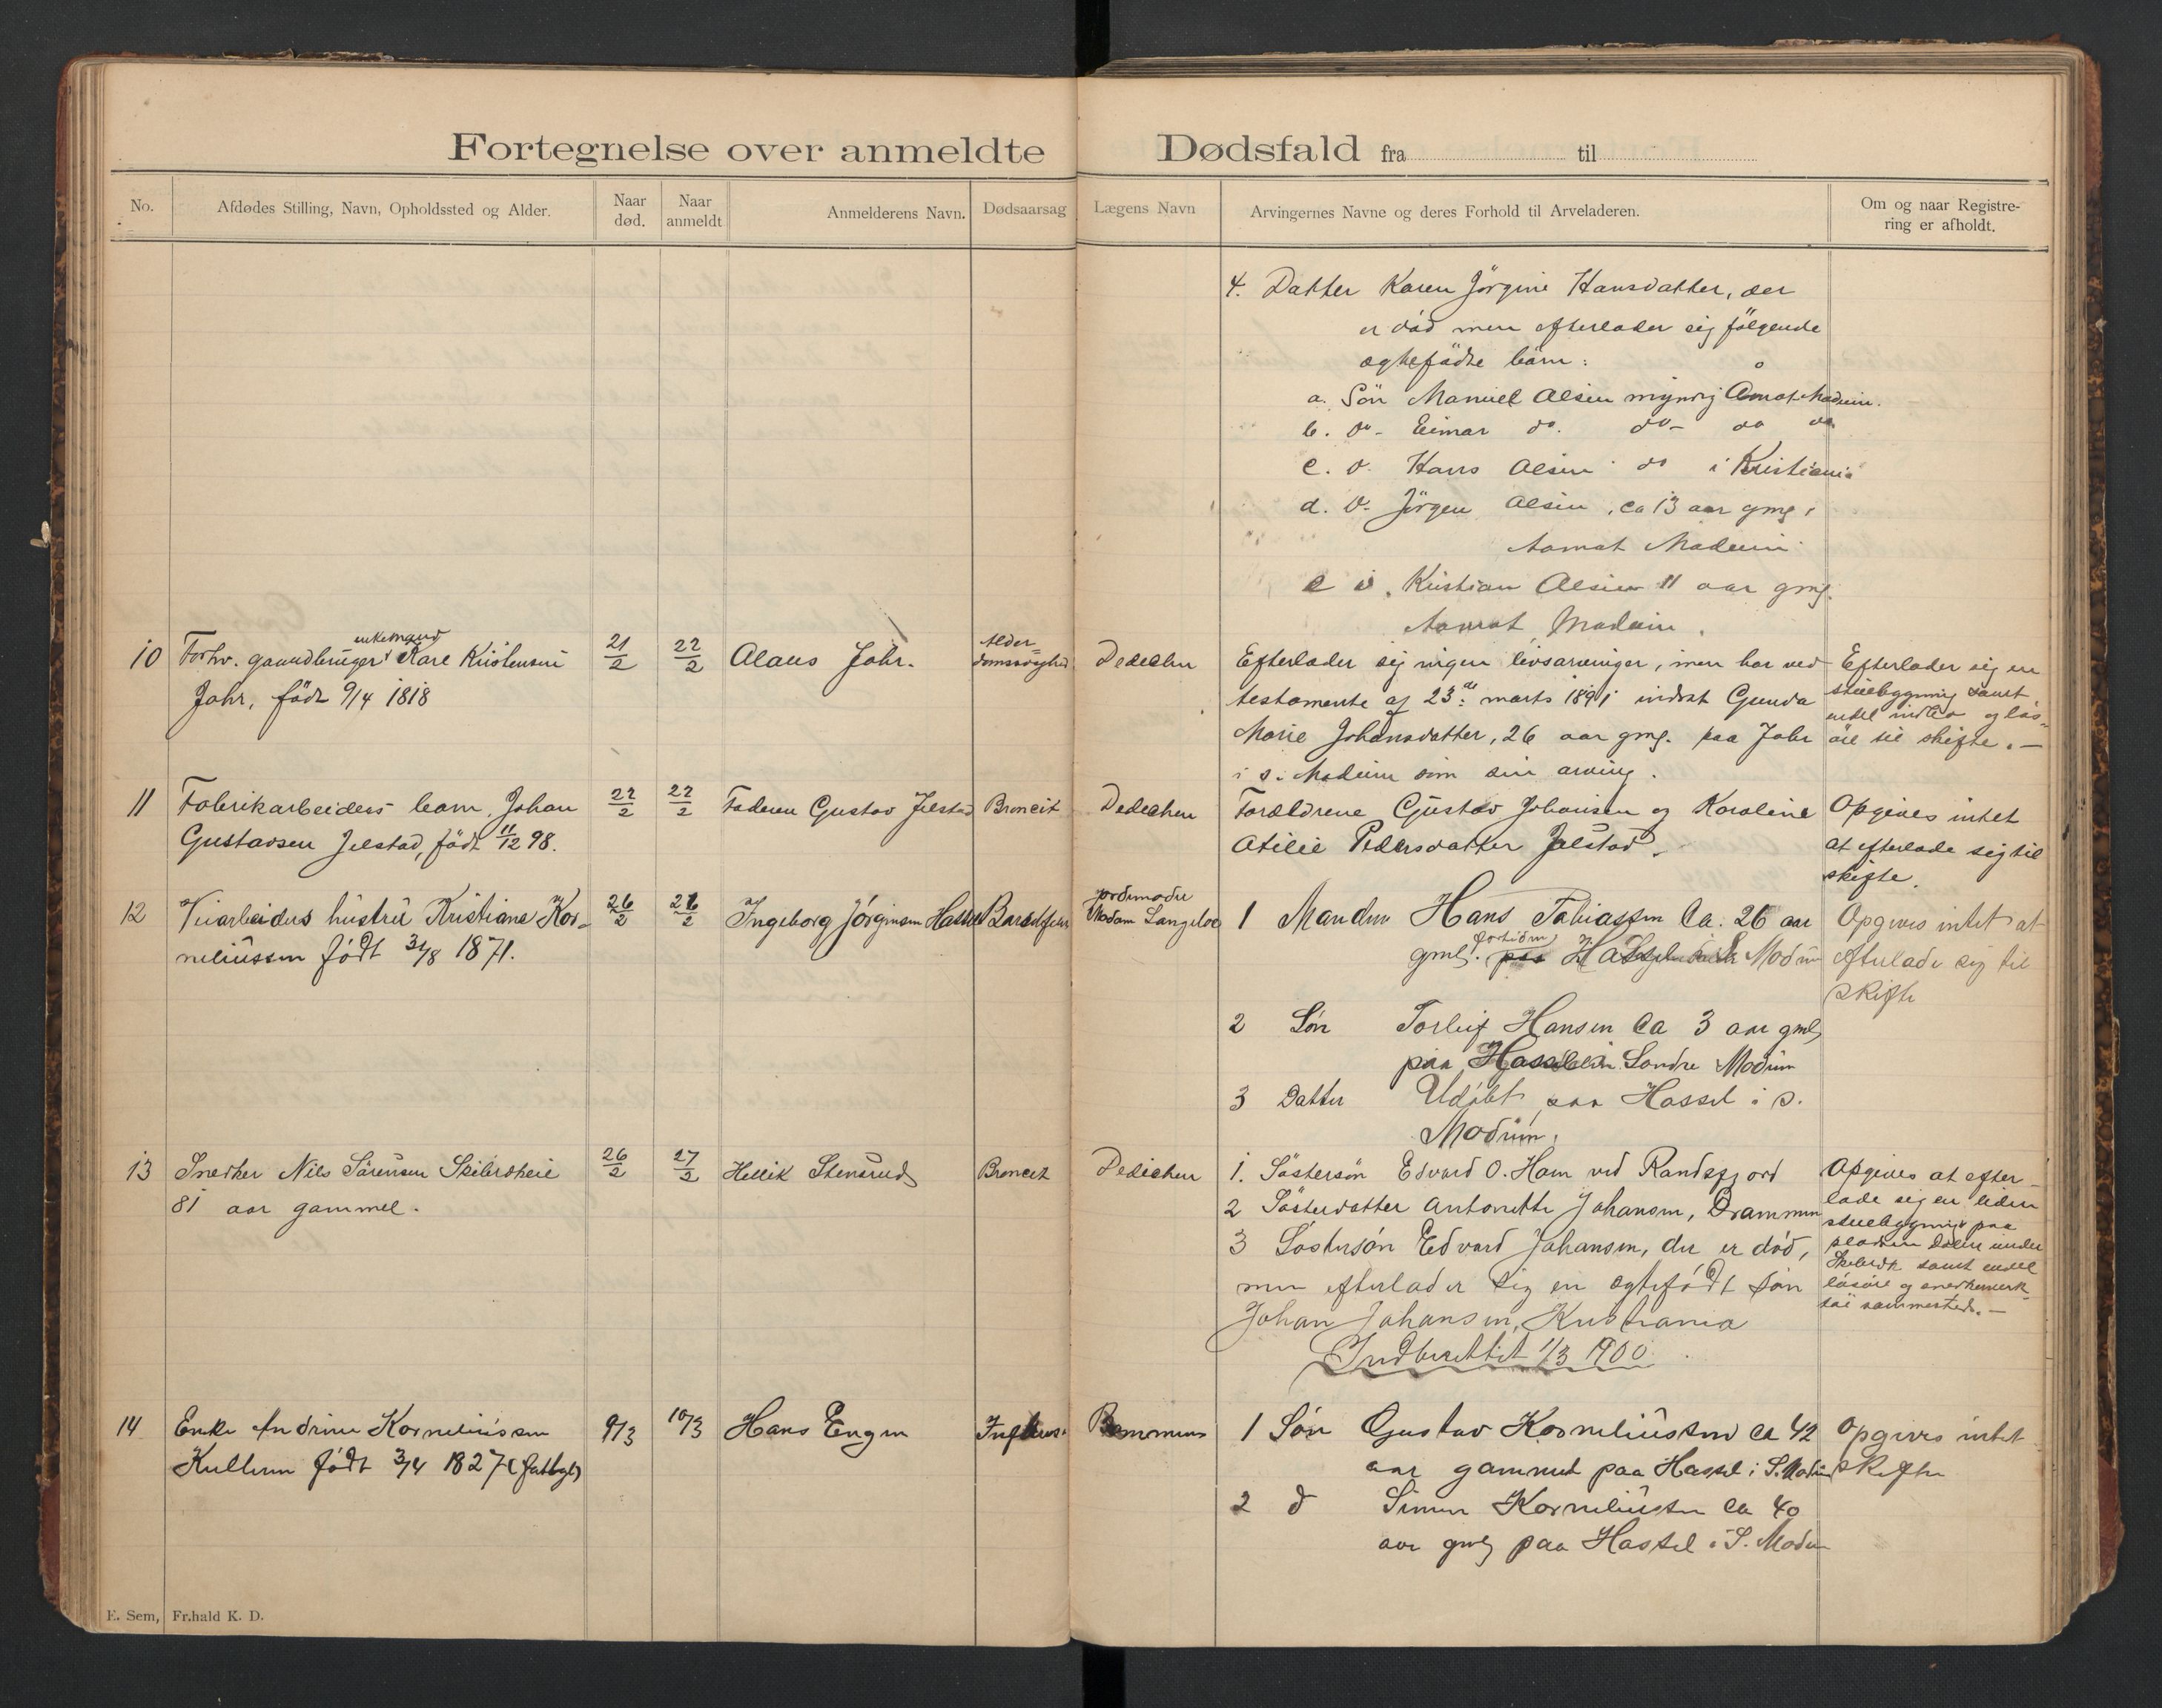 Fortegnelse over anmeldte Dødsfald fra til
No.
Afdødes Stilling, Navn, Opholdssted og Alder.
Naar død.
Naar anmeldt
Anmelderens Navn.
Dødsaarsag
Lægens Navn
Arvingernes Navne og deres Forhold til Arveladeren.
Om og naar Registre-
ring er afholdt.
4. Datter Karen Jörgine Hansdatter, der
er död men efterlader sig fölgende
ægtefödte börn:
a. Sön Manuel Olsen myndig Modum.
b. do- Einar do. do- do do
c. do. Hans Olsen do i Kristiania
d. do. Jörgen Olsen, ca 13 aar gmg i
Aamot Modum
e do. Kristian Olsen 11 aar gmg.
Aamot, Modum.
10
enkemand
Forhv. gaardbruger Kristensen
Johr, födt 9/4 1818
21/2
22/2
Olaus Johr.
Alder-
domssvaghed
Dedichen
Efterlader sig ingen livsarvinger, men har ved
testamente af 23de marts 1891 indsat Gunda
Marie Johansdatter, 26 aar gmg. paa Johr
i s. Modum som sin arving.
Efterlader sig en
stuebygning samt
endel indbo og lös-
öre til skifte. —
11
Fabrikarbeiders barn, Johan
Gustavsen Jelstad, födt 11/12 98.
22/2
22/2
Faderen Gustav Jelstad
Broncit
Dedichen
Forældrene Gustav Johansen og Karoline
Otilie Pedersdatter Jelstad.
Opgives intet
at efterlade sig til
skifte.
12
Veiarbeiders hustru Kristiane Kor-
neliussen født 31/8 1871.
26/2
26/2
Ingeborg Jørginsen Hassel
Barselfeber
jordemoder
Madam
1 Manden Hans Tobiassen Ca. 26 aar
gmlg. paa Hassel S Modum
Opgives intet at
efterlade sig til
skifte
2 Søn Torleif Hansen Ca 3 aar gmlg
paa Hassel i Søndre Modum
3 Datter Udøbt paa Hassel i S.
Modum.
13
Snedker Nils Sörensen Skibrdheie
81 aar gammel.
26/2
27/2
Hellik Stensrud
Broncit
Dedichen
1. Söstersön Edvard O. Horn ved Randsfjord
2 Søsterdatter Antonette Johansen, Drammen
3 Søstersøn Edvard Johansen, der er død,
men efterlader sig en ægtefødt søn
Johan Johansen, Kristiania
Indberettet 1/3 1900.
Opgives at efter-
lade sig en liden
stuebygning paa
pladsen Dalen under
samt endel
lösöre og snedkerverk-
töi sammesteds. —
14
Enke Andrine Korneliussen
Kullerun født 3/4 1827 (fattigl)
9/3
10/3
Hans Engen
Influens.
1 Søn Gustav Korneliussen Ca 42
aar gammel paa Hassel i S. Modum
2 d Simen Korneliussen Ca 40
aar gmlg paa Hassel i S. Modum
Opgives intet
skifte
E. Sem, Fr.hald K. D.